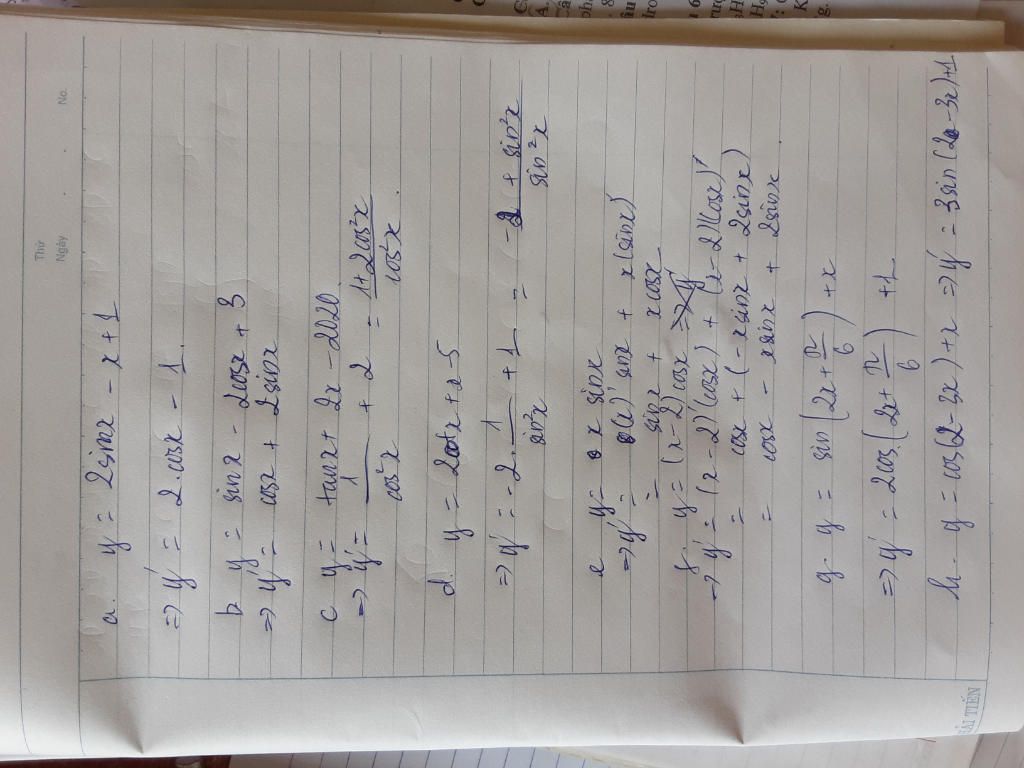 Thứ
Ngày
No.
a. y = 2sinx - x + 1
=> y' = 2.cosx - 1.
b y = sinx - 2cosx + 3
=> y' = cosx + 2sinx
c y = tanx + 2x - 2020.
=> y' = 1/cos²x + 2 = 1 + 2cos²x/cos²x.
d. y = 2cotx + x - 5
=> y' = -2. 1/sin²x + 1 = -2 + sin²x/sin²x
e y = x sinx
=> y' = (x)' sinx + x(sinx)'
= sinx + xcosx
f. y = (x - 2)cosx
=> y' = (x - 2)'(cosx) + (x - 2)(cosx)'
= cosx + (-xsinx + 2sinx)
= cosx - xsinx + 2sinx
g. y = sin(2x + π/6) + x
=> y' = 2cos.(2x + π/6) + 1.
h. y = cos(2 - 3x) + x => y' = 3sin(2 - 3x) + 1
HẢI TIẾN